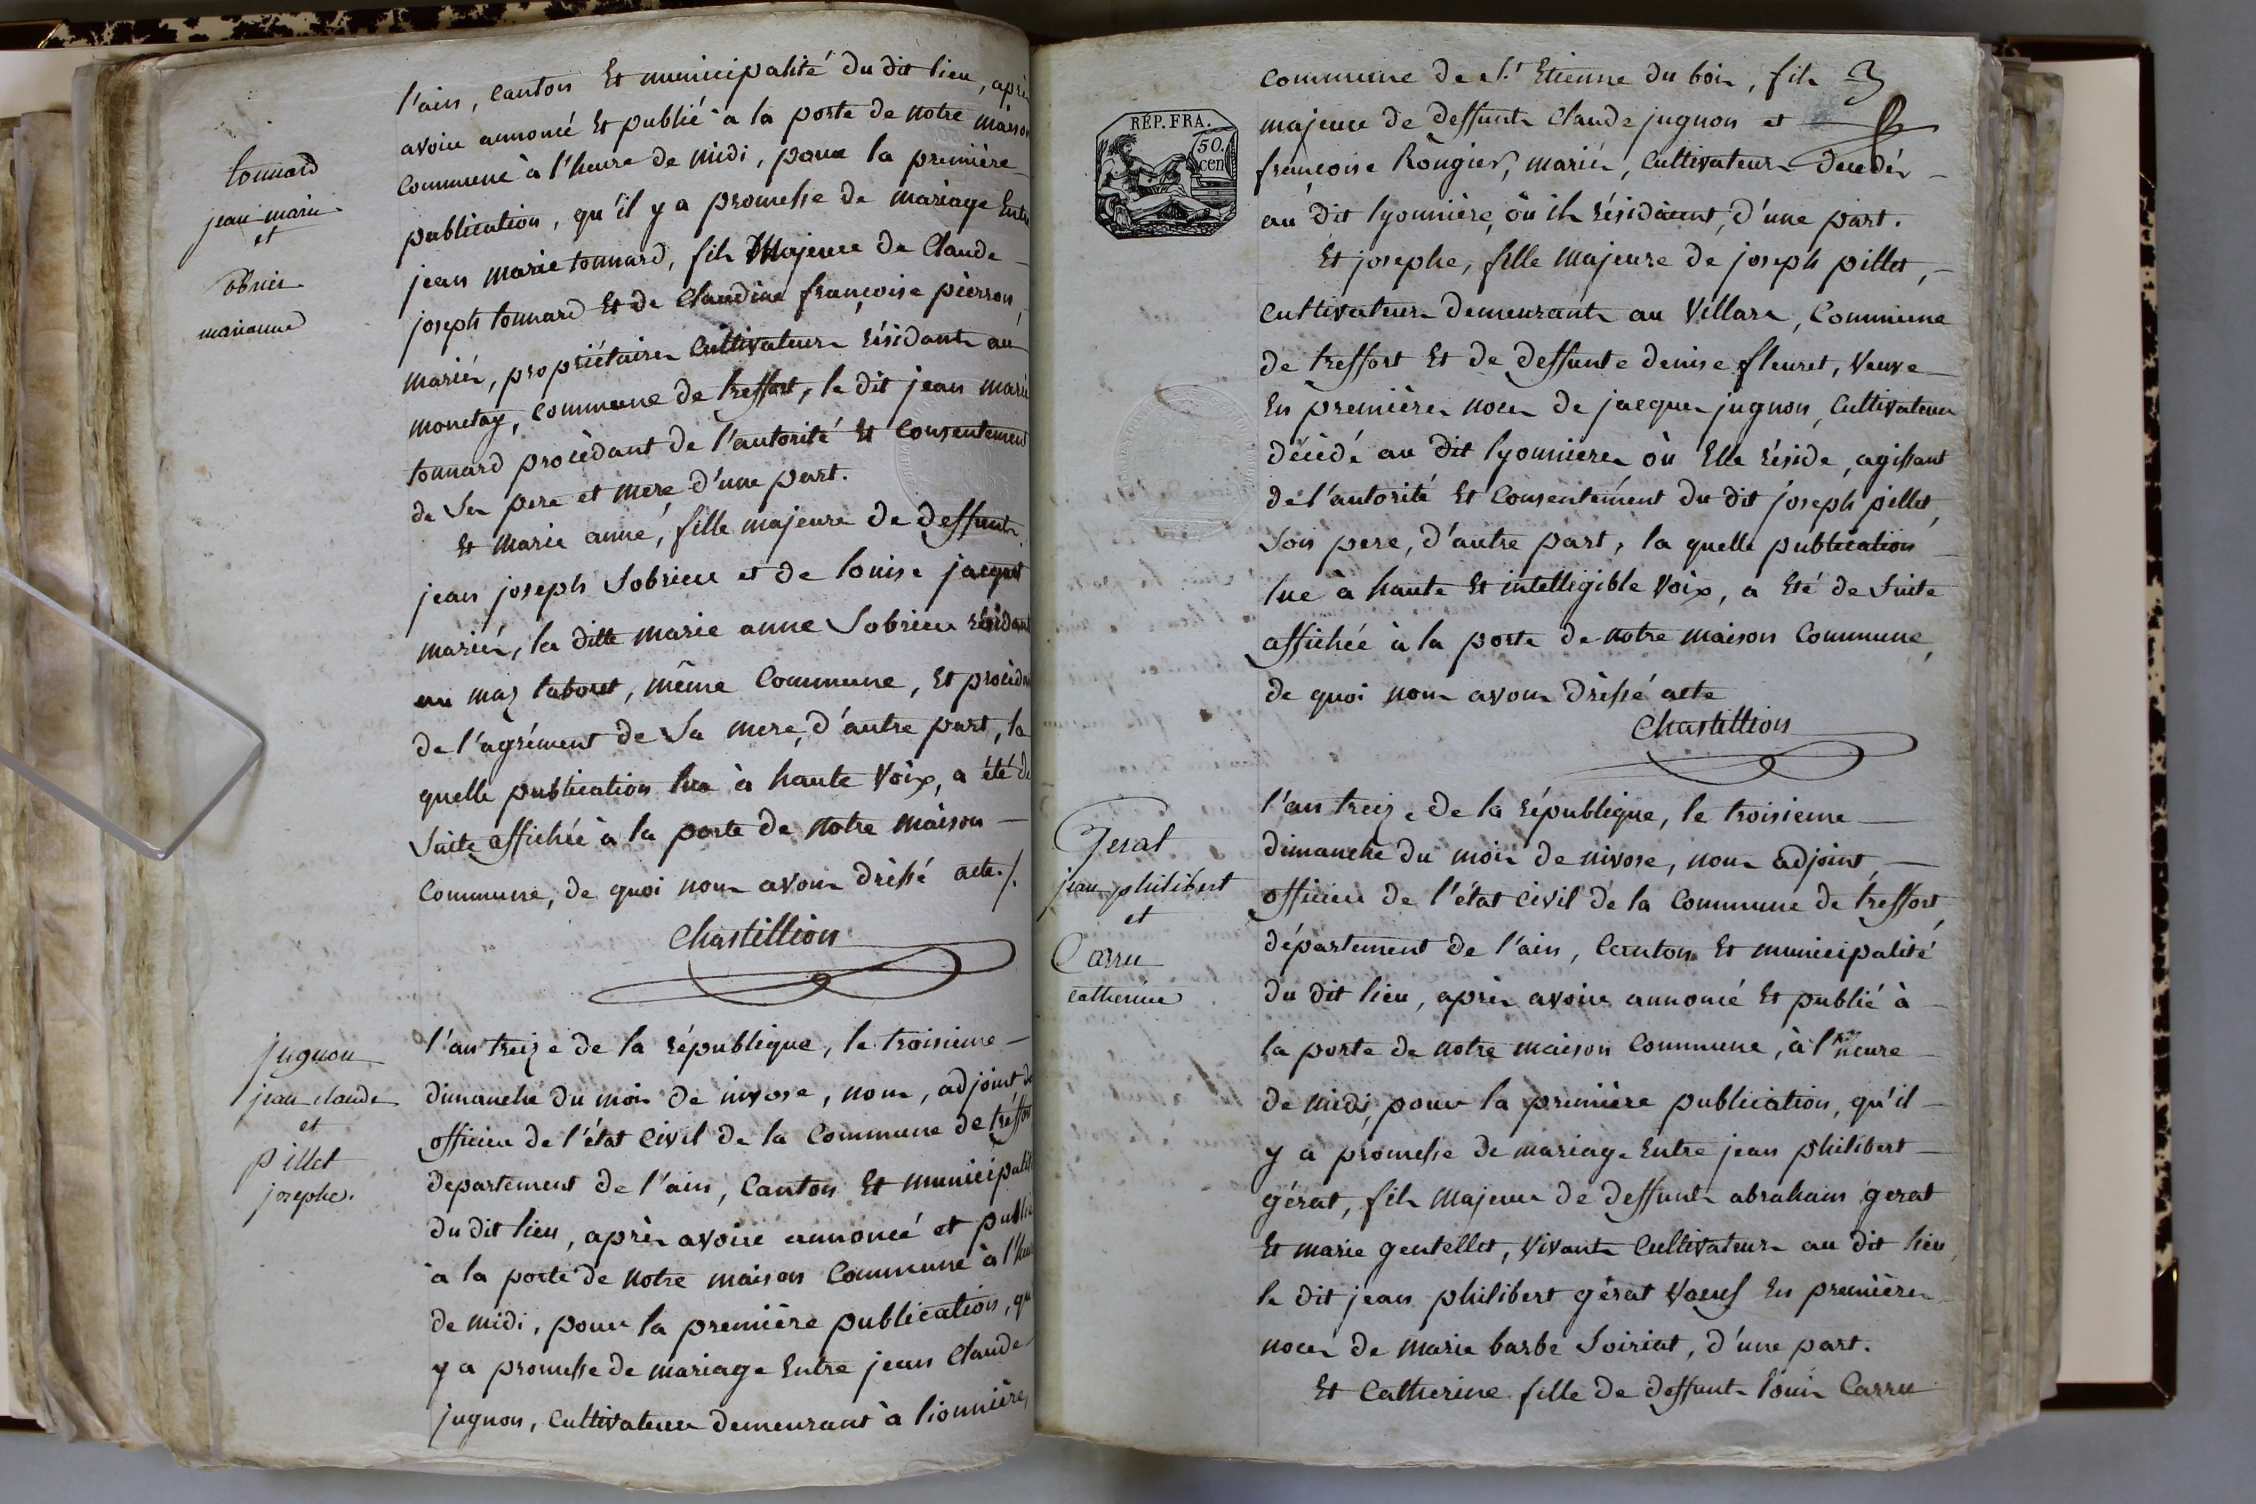 l'ain, canton Et municipalité du dit lieu, après
avoir annoncé Et publié à la porte de notre maison
commune à l'heure de midi, pour la première
publication, qu'il y a promesse de mariage Entre
jean marie tonnard, fils Majeur de Claude
joseph tonnard Et de Claudine françoise pierron,
mariés, propriétaires Cultivateurs résidants au
monetay, commune de treffort, le dit jean marie
tonnard procèdant de l'autorité Et Consentement
de Ses pere et mere d'une part.
Et Marie anne, fille majeure de deffunts
jean joseph Sobrieu et de louise jacquet
mariés, la ditte marie anne Sobrieu résidant
au maz taboret, même Commune, Et procèdant
de l'agrément de Sa mere, d'autre part, la
quelle publication lue à haute Voix, a été de
Suite affichée à la porte de Notre maison
Commune, de quoi nous avons dréssé acte./.
Chastillion
tonnard
jean marie
et
marianne
l'an treize de la république, le troisieme
dimanche du mois de nivose, nous, adjoint
officier de l'état Civil de la Commune de treffort
departement de l'ain, Canton Et municipalité
du dit lieu, après avoir annoncé et publié
à la porte de notre maison Commune à l'heure
de midi, pour la première publication, qu'il
y a promesse de mariage Entre jean Claude
jugnon, Cultivateur demeurant à lionnières,
jugnon
jean claude
et
pillet
josephe.
3
commune de St. Etienne du bois, fils
majeur de deffunts Claude jugnon et
françoise Rougier, mariés, Cultivateurs decedés
au dit lyonnières, où ils résidaient, d'une part.
Et josephe, fille Majeure de joseph pillet,
Cultivateur demeurant au Villars, Commune
de treffort Et de deffunte denise fleuret, Veuve
En premières noces de jacques jugnon, Cultivateur
dècédé au dit lyonnieres où Elle réside, agissant
de l'autorité Et Consentement du dit joseph pillet,
Son pere, d'autre part, la quelle publication
lue à haute Et intelligible Voix, a Eté de Suite
affichée à la porte de notre maison Commune,
de quoi nous avons dréssé acte
Chastillion
RÉP. FRA.
50.
cen
l'an treize de la république, le troisieme
dimanche du mois de nivose, nous adjoint,
officier de l'état Civil de la Commune de treffort,
département de l'ain, Canton Et municipalité
du dit lieu, après avoir annoncé Et publié à
la porte de notre maison Commune, à l'heure
de midi, pour la première publication, qu'il
y a promesse de mariage Entre jean philibert
gérat, fils majeur de deffunts abraham gerat
Et marie gentellet, Vivants Cultivateurs au dit lieu,
le dit jean philibert gérat Vaeuf En premières
noces de marie barbe Soiriat, d'une part.
Et Catherine fille de deffunts louis Carru
Gerat
jean philibert
et
Carru
catherine